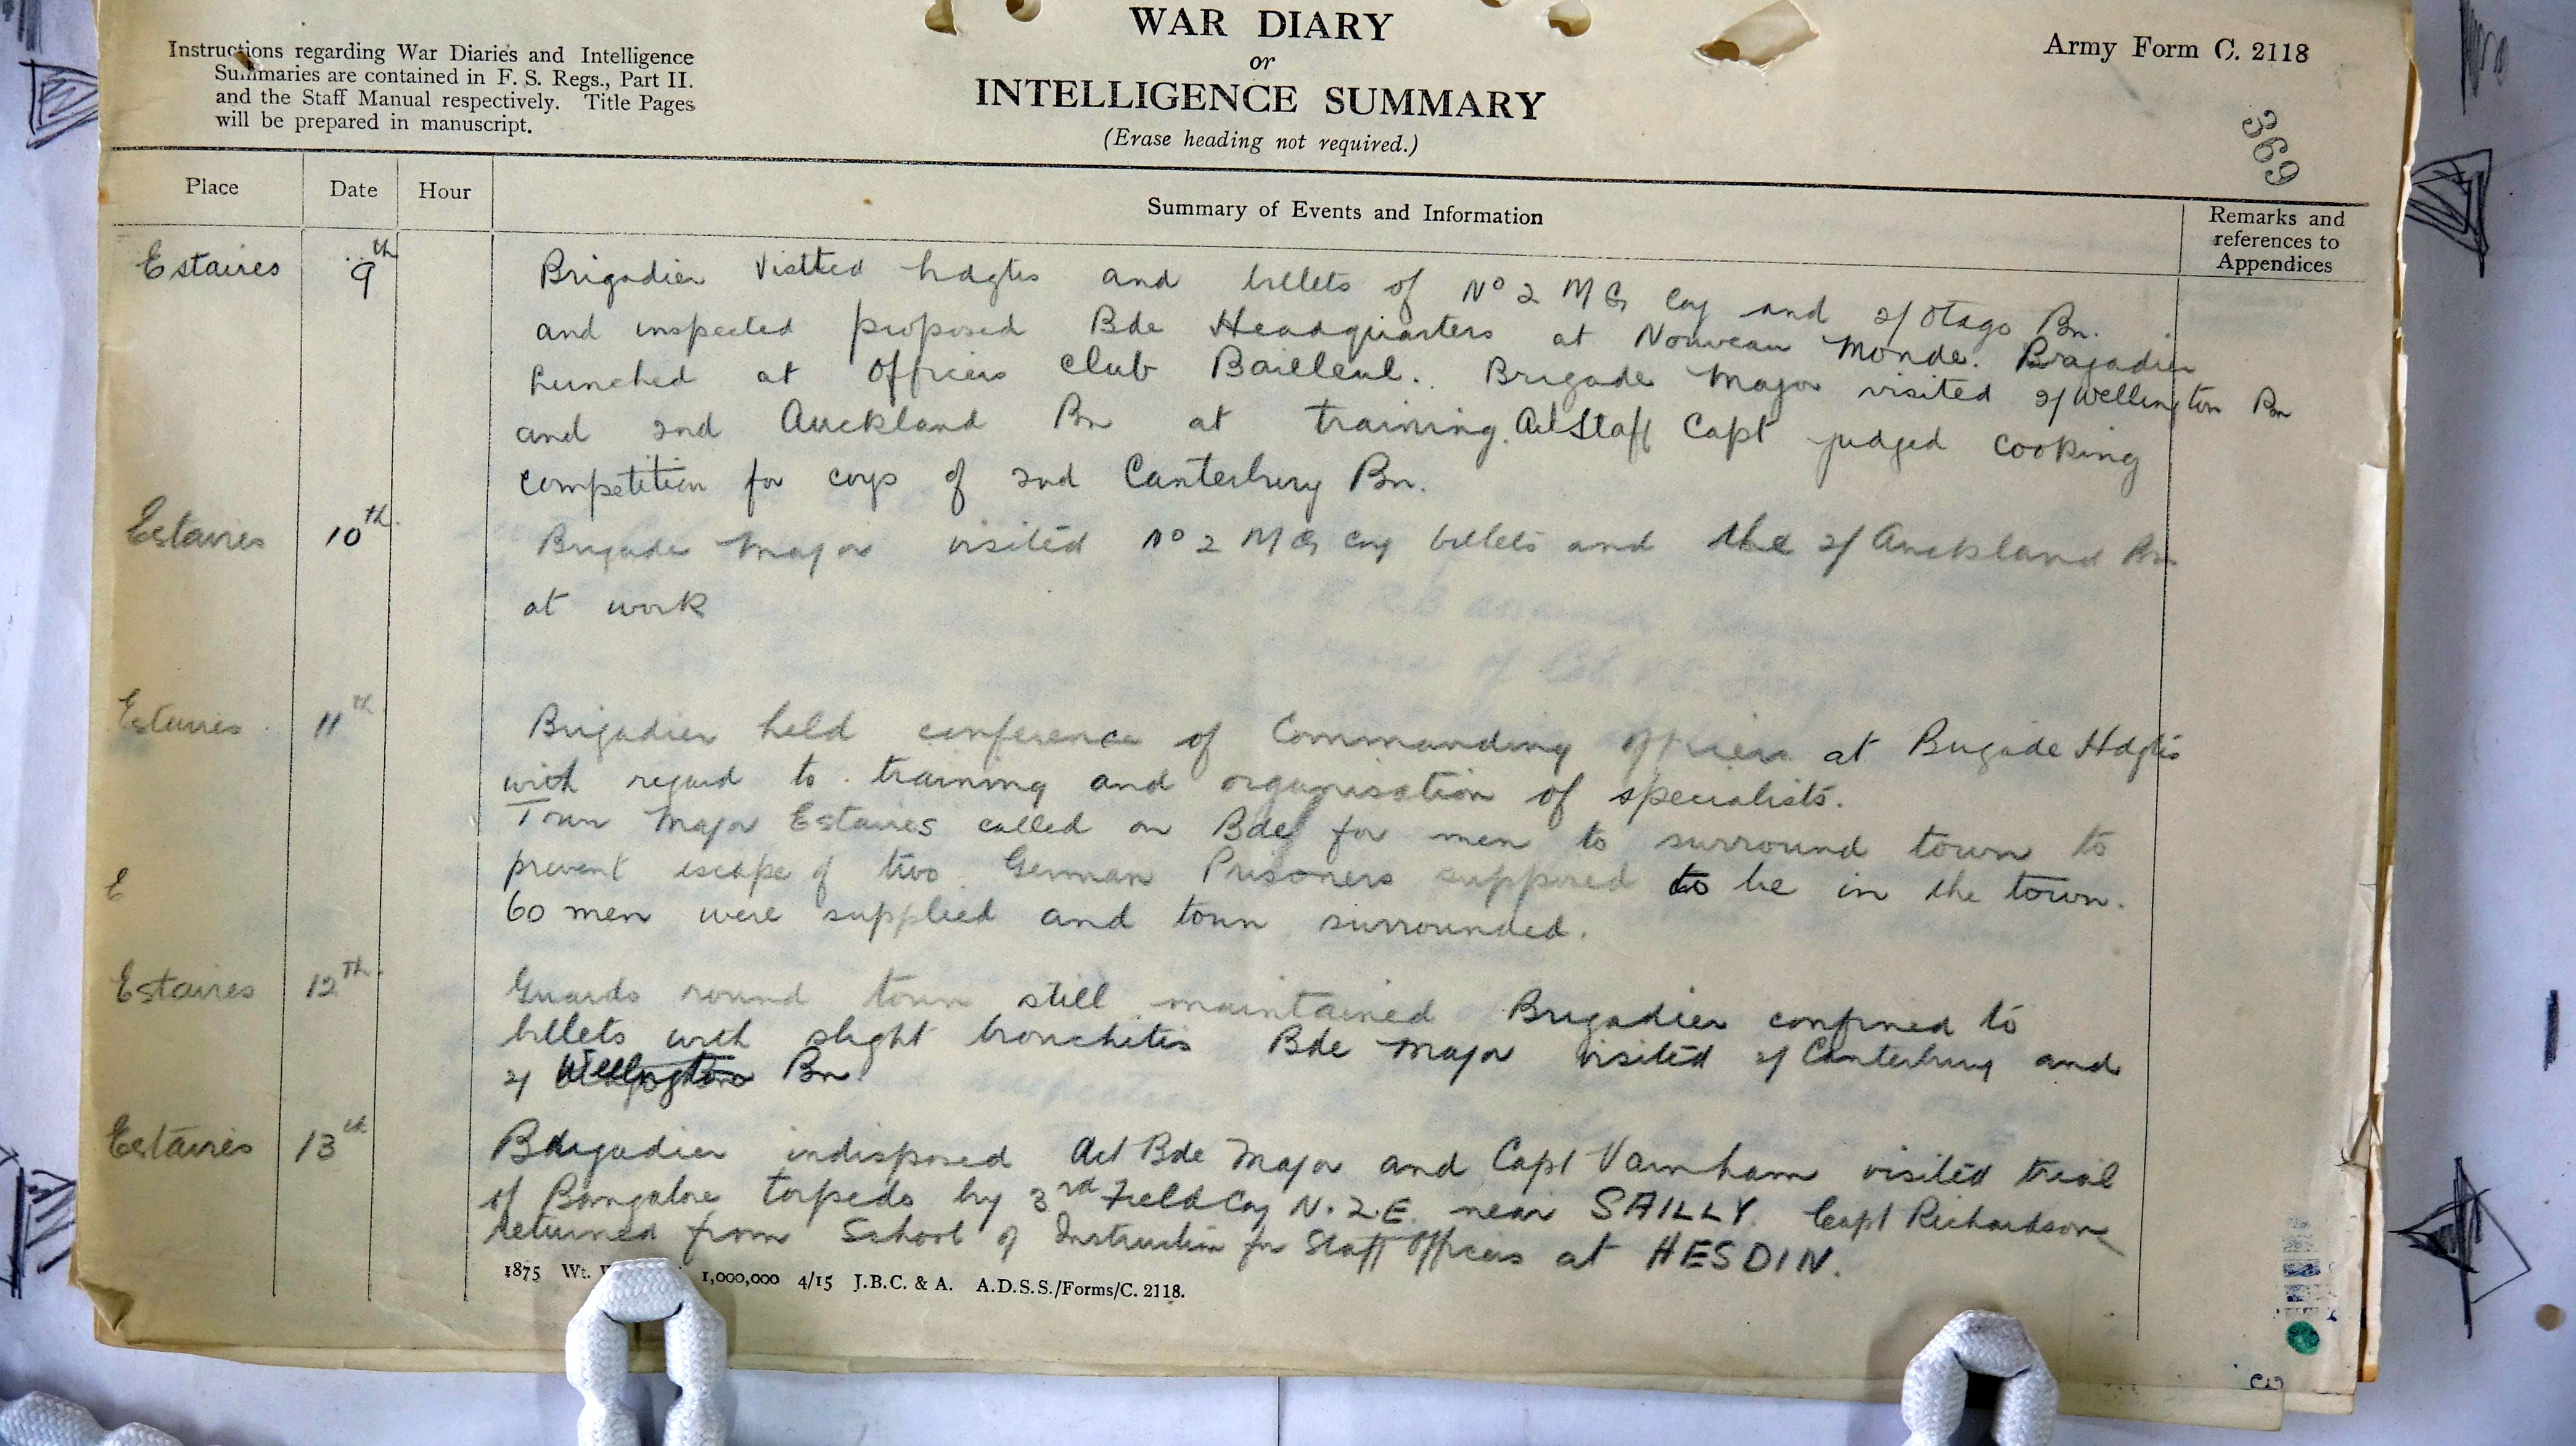 WAR DIARY
or
INTELLIGENCE SUMMARY
(Erase heading not required.)
Instructions regarding War Diaries and Intelligence
Summaries are contained in F. S. Regs., Part II.
and the Staff Manual respectively. Title Pages
will be prepared in manuscript.
Army Form C. 2118
369
Place Date Hour Summary of Events and Information Remarks and
references to
Appendices
Estaires 9th Brigadier visited hdqtrs and billets of No 2 MG Coy and 2/Otago Bn.
and inspected proposed Bde Headquarters at Nouveau Monde. Brigadier
lunched at Officers club Bailleul. Brigade Major visited 2/Wellington Bn
and 2nd Auckland Bn at training. Staff Capt judged cooking
competition for coys of 2nd Canterbury Bn.
Estaires 10th Brigade Major visited No 2 MG Coy billets and the 2/Auckland Bn
at work
Estaires 11th Brigadier held conference of Commanding officers at Brigade Hdqtrs
with regard to training and organisation of specialists.
Town Major Estaires called on Bde for men to surround town to
prevent escape of two German Prisoners supposed to be in the town.
E
60 men were supplied and town surrounded.
Estaires 12th Guards round town still maintained Brigadier confined to
billets with slight bronchitis Bde Major visited 2/Canterbury and
2/ Wellington Bn.
Estaires 13th Brigadier indisposed Act Bde Major and Capt Varnham visited trial
of Bangalore torpedo by 3rd Field Coy N.Z.E. near SAILLY. Capt Richardson
returned from School of Instruction for Staff Officers at HESDIN.
1875 Wt. 1,000,000 4/15 J.B.C. & A. A.D.S.S./Forms/C. 2118.